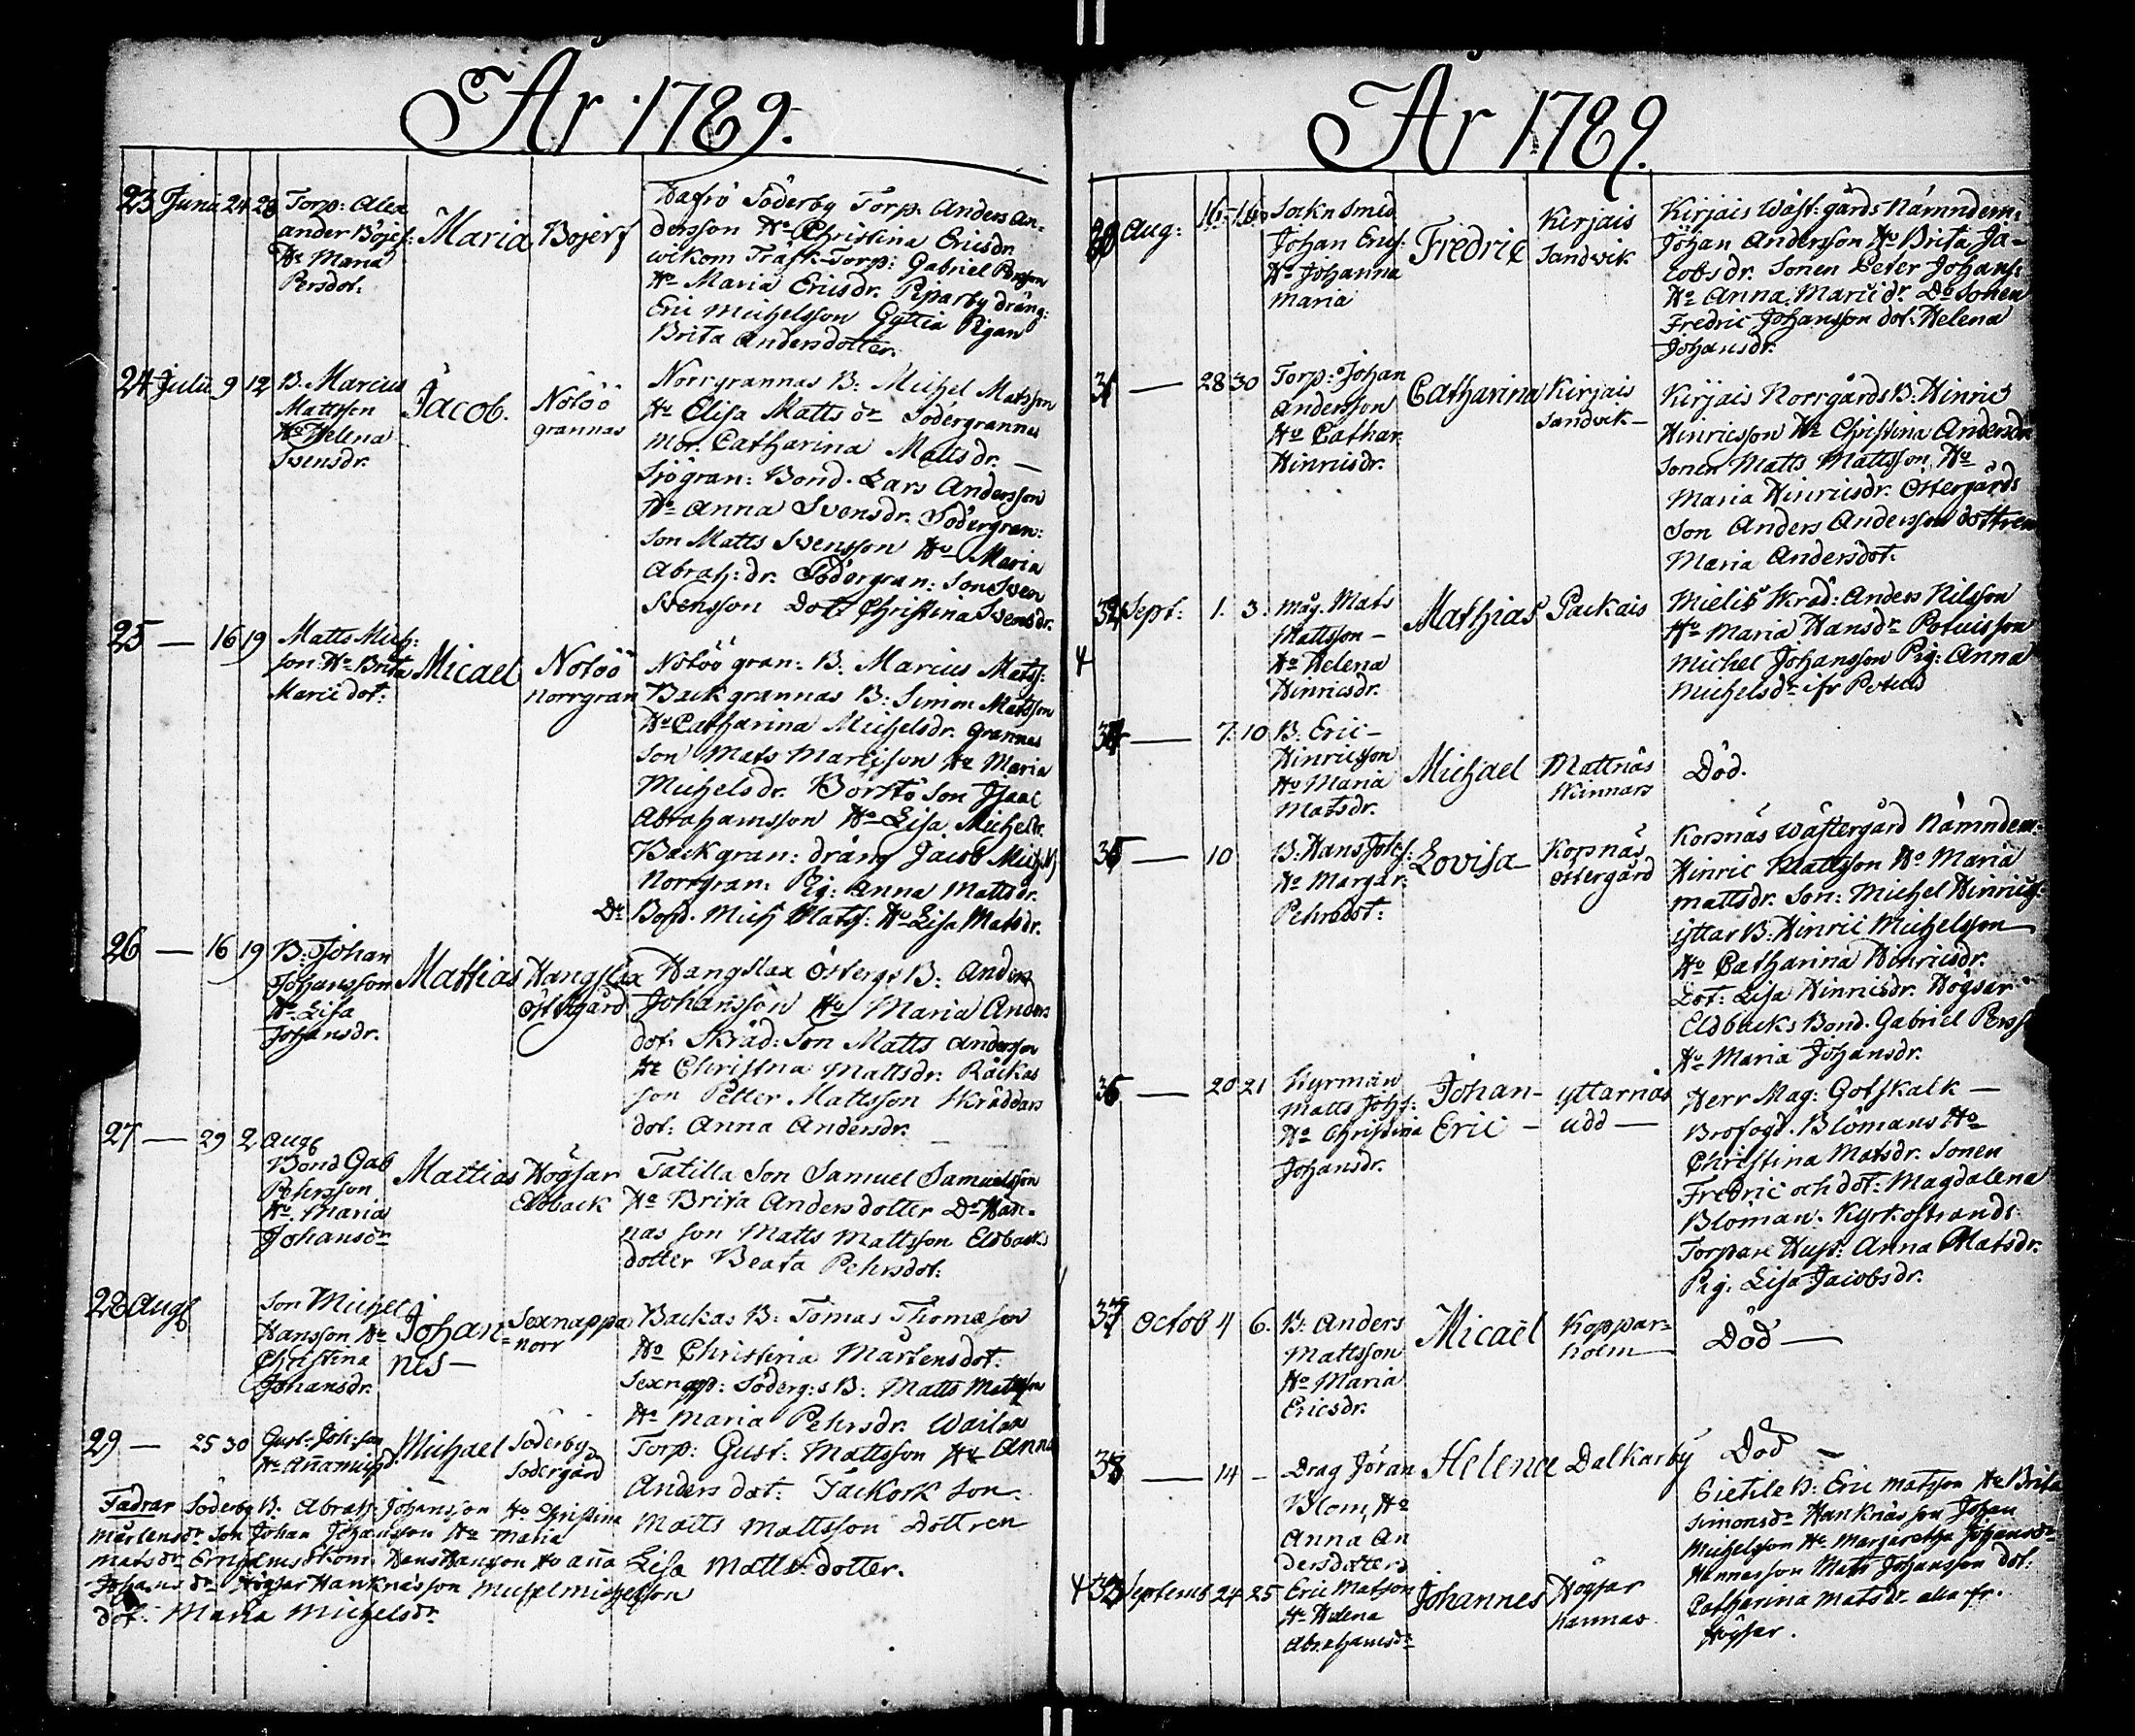 År 1789.
23 Junii 24 28 Torp: Alex
ander Böjers:
Ho Maria
Persdot:
Maria
Bojers
Nafrö Söderby Torp. Anders An-
dersson Ho Christina Ericsdr.
wikom Träsk-Torp: Gabriel Persson
Ho Maria Ericsdr. Piparby dräng:
Eric Michelsson Gyttia Pigan
Brita Andersdotter.
24 Julii 9 12 B. Marcus
Mattsson
Ho Helena
Svensdr.
Jacob.
Nötöö
grannas
Norrgrannas B: Michel Matsson
Ho Elisa Matts dr Södergrannas
Mor. Catharina Mattsdr. —
Sjögran: Bond. Lars Andersson
Ho Anna Svensdr. Södergran:
Son Matts Svensson Ho Maria
Abrah: dr. Södergran: Son Sven
Svensson Dot: Christina Svensdr.
25 — 16 19 Matts Mich:
son: Ho Brita
Marcidot:
Micael
Nötöö
Norrgran
Nötöö gran: B. Marcus Matss:
Backgrannas B: Simon Matsson
Ho Catharina Michelsdr. grannas
Son Mats Marcisson Ho Maria
Michelsdr. Börstö Son Isaac
Abrahamsson Ho Lisa Michelsdr.
Backgran: dräng Jacob Michels
Norrgran: Pig: Anna Mattsdr.
Do Bond. Mich Matss: Ho Lisa Matsdr.
26 — 16 19 B: Johan
Johansson
Ho Lisa
Johansdr.
Mathias
Hangslax
Östergård
Hangslax Österg: B: Anders
Johansson Ho Maria Anders
dot. Skräd: Son Matts Andersson
Ho Christina Mattsdr. Räckas
son Petter Mattsson Skräddars
dot: Anna Andersdr. —
27 — 29 2 Aug
Bond Gab
Pehrsson
Ho Maria
Johansdr
Mattias
Högsar
Eldback
Tatilla Son Samuel Samuelsson
Ho Brita Andersdotter Do Han-
nas son Matts Mattsson Eldbacks
dotter Beata Pehrsdot:
28 Aug
Son Michel
Hansson Ho
Christina
Johansdr.
Johan=
nes —
Sexnappa
norr
Backas B: Tomas Thomasson
Ho Christina Mårtensdot:
Sexnapp: Söderg:s B: Matts Mattsson
Ho Maria Pehrsdr. Wailax
29 — 25 30 Gust: Joh:son
Ho Anna Michsd.
Michael
Söderby
Södergård
Torp: Gust: Mattsson Ho Anna
Anders dot: Täckork Son.
Matts Mattsson Dottren
Lisa Matts dotter.
Fadrar Söderby B: Abrah: Johansson Ho Christina
Mårtensdr Son Johan Johansson Ho Maria
Matsdr Hans Hansson Ho Anna
Johansdr Högsar Hanknässon Michel Michelsson
dot: Maria Michelsdr
År 1789.
30 Aug: 16. 16 Sockn Smed
Johan Erics:
Ho Johanna
Maria
Fredric
Kirjais
Sandvik
Kirjais Wäst: gårds Nämndem:
Johan Andersson Ho Brita Ja-
cobsdr. Sonen Peter Johans:
Ho Anna Marcidr. Do Sonen
Fredric Johansson dot. Helena
Johansdr.
31 — 28 30 Torp: Johan
Andersson
Ho Cathar.
Hinricsdr.
Catharina
Kirjais
Sandvik —
Kirjais Norrgårds B: Hinric
Hinricsson Ho Christina Andersdr
Sonen Matts Mattsson Ho
Maria Hinricsdr. Östergårds
Son Anders Andersson dottren
Maria Andersdot:
32 Sept: 1. 3. Måg. Mats
Mattsson —
Ho Helena
Hinricsdr.
Mathias
Packais
Mielis Skräd: Anders Nilsson
Ho Maria Hansdr Potuis son
Michel Johansson Pig: Anna
Michelsdr ifr Potuis
34 — 7. 10 B: Eric —
Hinricsson
Ho Maria
Matsdr.
Michael
Mattnäs
Skinnars
Död.
35 — 10 B: Hans Johs:
Ho Margar.
Pehrsdot:
Lovisa
Korsnäs
Östergård
Korsnäs Wästergård Nämndem:
Hinric Mattsson Ho Maria
Mattsdr. Son: Michel Hinrics:
yttar B. Hinric Michelsson
Ho Catharina Hinricsdr.
Dot: Lisa Hinricsdr. Högsar
Eldbacks Bond. Gabriel Perss
Ho Maria Johansdr.
36 — 20 21 Styrman
Matts Johs:
Ho Christina
Johansdr.
Johan —
Eric —
yttarnäs
udd —
Herr Mag: Gotskalk —
Brofogd. Blomans Ho
Christina Matsdr. Sonen
Fredric och dot: Magdalena
Bloman. Kyrkostrands
Torpare Hust: Anna Matsdr.
Pig. Lisa Jacobsdr.
37 Octob 4 6. B: Anders
Mattsson
Ho Maria
Ericsdr.
Micaël
Koppar=
holm
Död —
38 — 14 — Drag Jöran
Blom, Ho
Anna An
dersdotter
Helena
Dalkarby
Död —
33 Septemb 24 25 Eric Matson
Ho Helena
Abrahamsdr
Johannes
Högsar
Hannas
Gietile B: Eric Matsson Ho Brita
Simonsdr Hanknäs son Johan
Michelsson Ho Margaretha Johansdr
Hannasson Mats Johansson dot:
Catharina Matsdr alla fr.
Högsar.